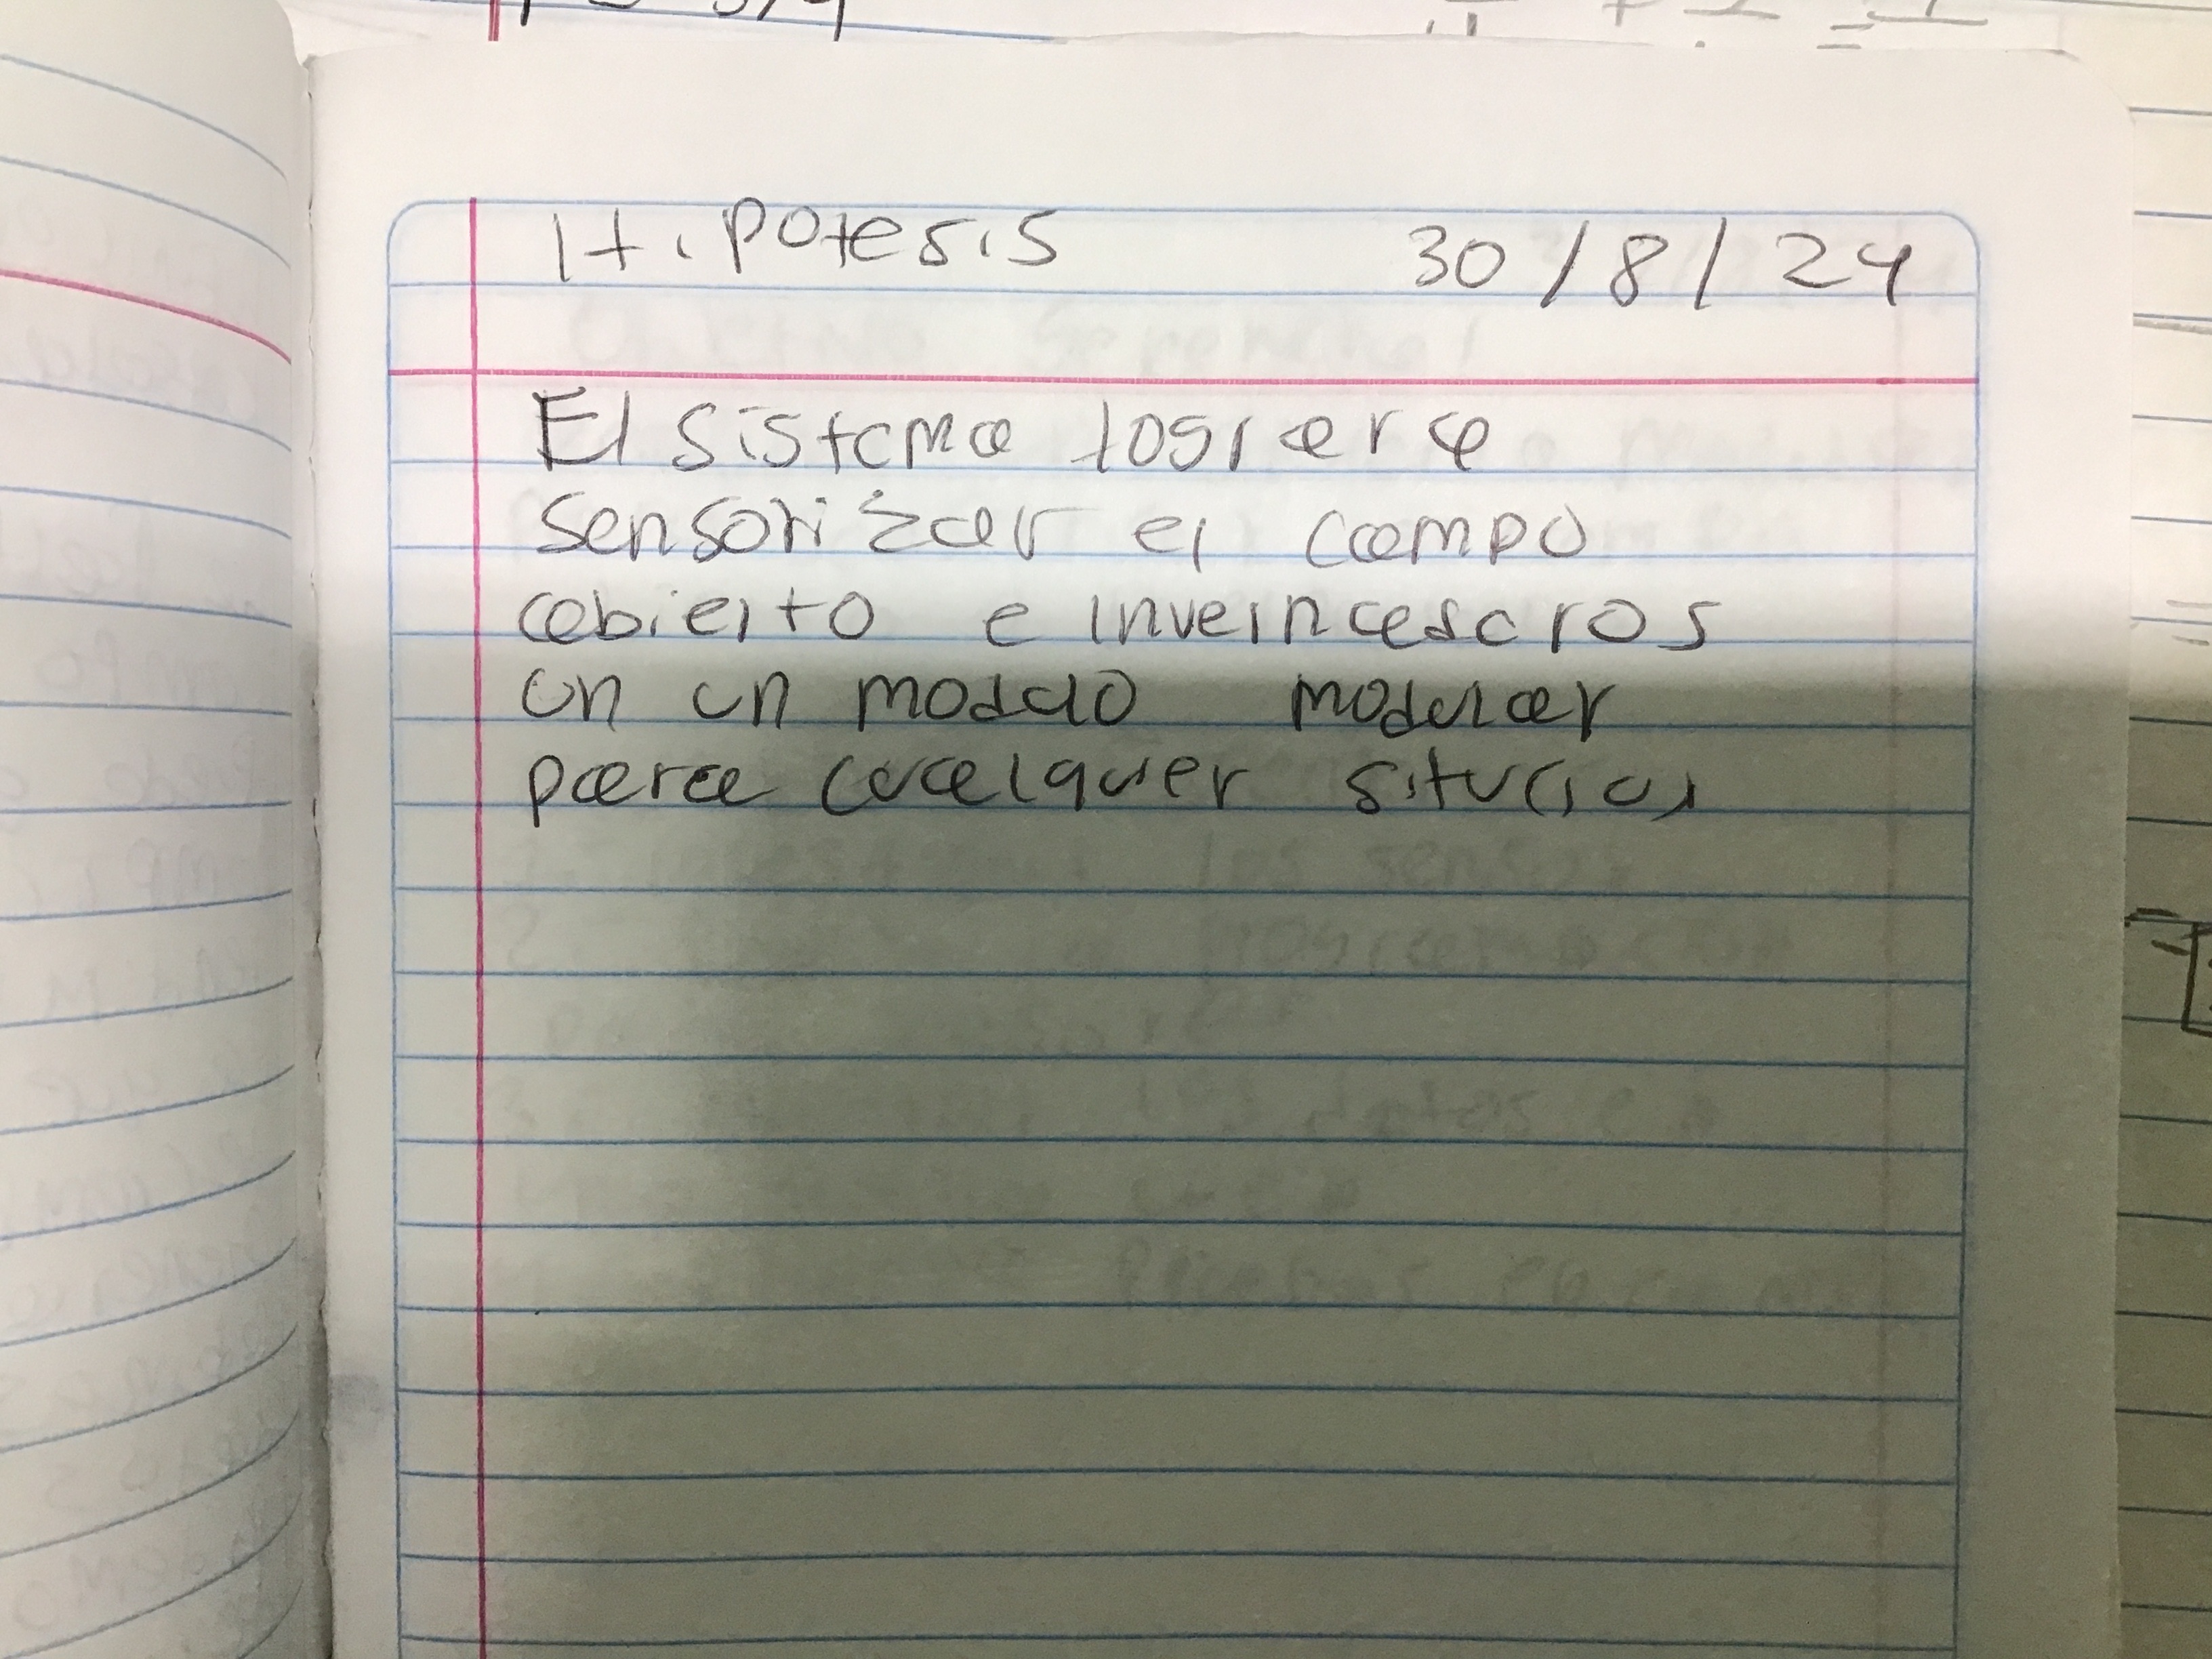 Hipotesis 30/8/24
El sistema lograra
sensorizar el campo
abierto e invernaderos
en un modelo modular
para cualquier